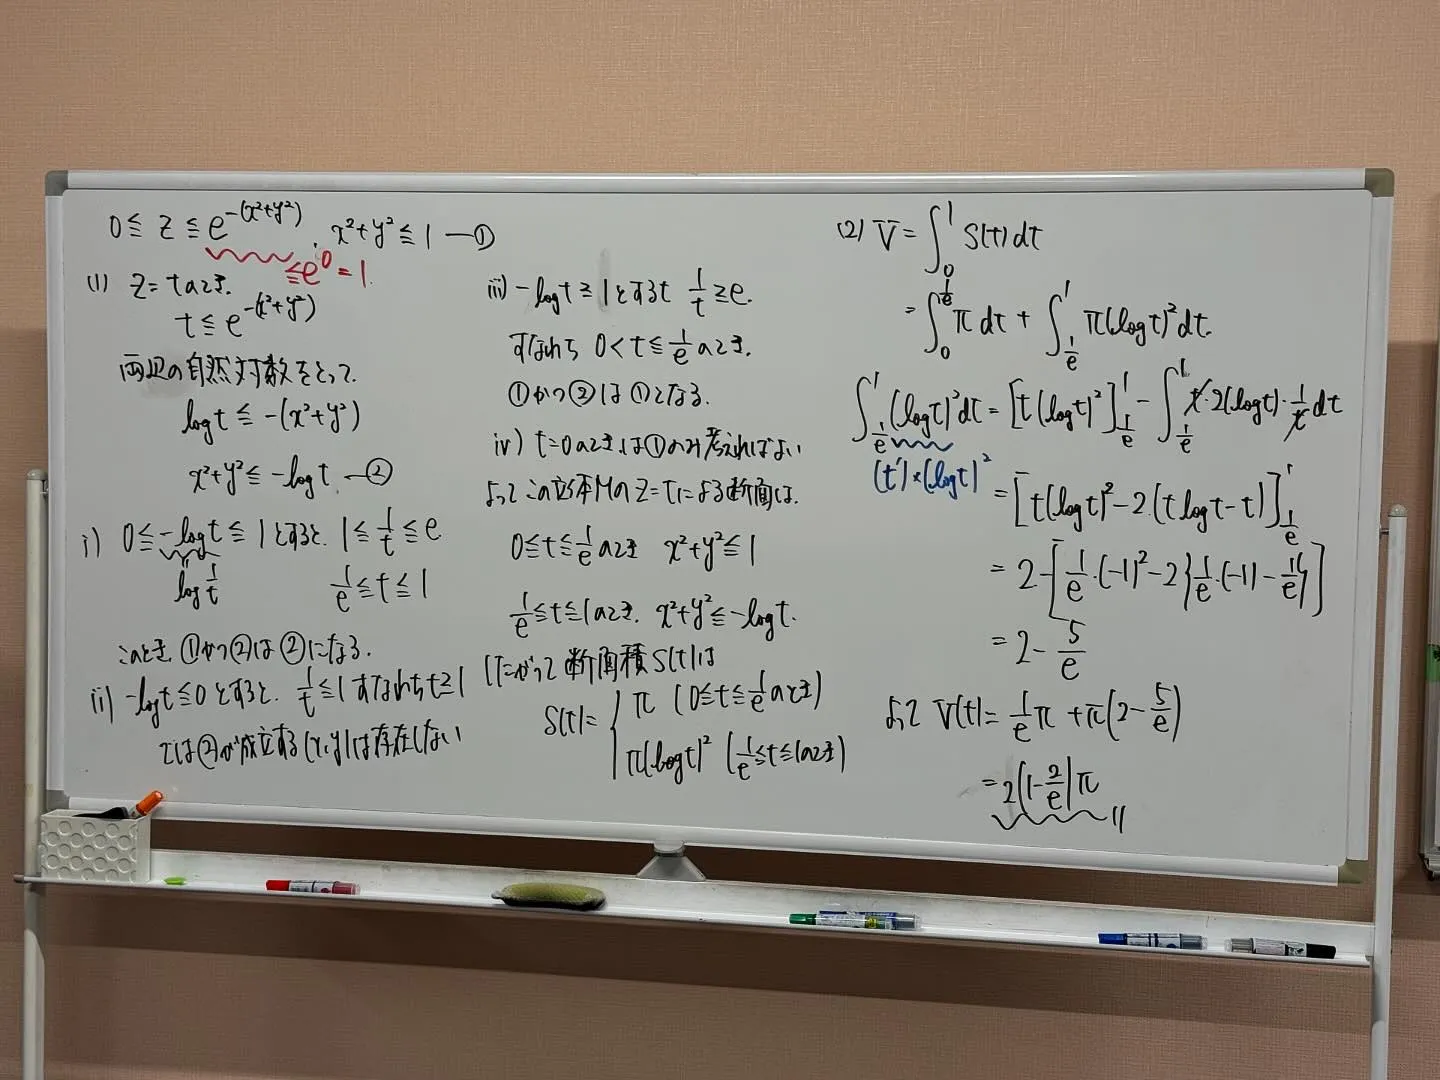 0 ≦ z ≦ e^{-(x²+y²)}, x²+y² ≦ 1 ―①
≦e⁰ = 1
(1) z=tのとき.
t ≦ e^{-(x²+y²)}
両辺の自然対数をとって.
log t ≦ -(x²+y²)
x²+y² ≦ -log t. ―②
i) 0 ≦ -log t ≦ 1 とすると, 1 ≦ 1/t ≦ e
log 1/t
1/e ≦ t ≦ 1
このとき, ①かつ②は②になる.
ii) -log t ≦ 0 とすると, 1/t ≦ 1 すなわち t ≧ 1
では②が成立する(x,y)は存在しない
iii) -log t ≧ 1 とすると 1/t ≧ e.
すなわち 0 < t ≦ 1/e のとき.
①かつ②は①となる.
iv) t=0のときは①のみ考えればよい
よってこの立体Mのz=tによる断面は.
0 ≦ t ≦ 1/e のとき x²+y² ≦ 1
1/e ≦ t ≦ 1 のとき. x²+y² ≦ -log t.
したがって断面積S(t)は
S(t) = { π (0 ≦ t ≦ 1/e のとき)
π(log t)² (1/e ≦ t ≦ 1 のとき)
(2) V = ∫₀¹ S(t)dt
= ∫₀^{1/e} π dt + ∫_{1/e}^1 π(log t)² dt.
∫_{1/e}^1 (log t)² dt = [t(log t)²]_{1/e}^1 - ∫_{1/e}^1 t・2(log t)・1/t dt
(t')×(log t)²
= [t(log t)² - 2(t log t - t)]_{1/e}^1
= 2 - [1/e・(-1)² - 2{1/e・(-1) - 1/e}]
= 2 - 5/e
よって V(t) = 1/e π + π(2 - 5/e)
= 2(1 - 2/e)π